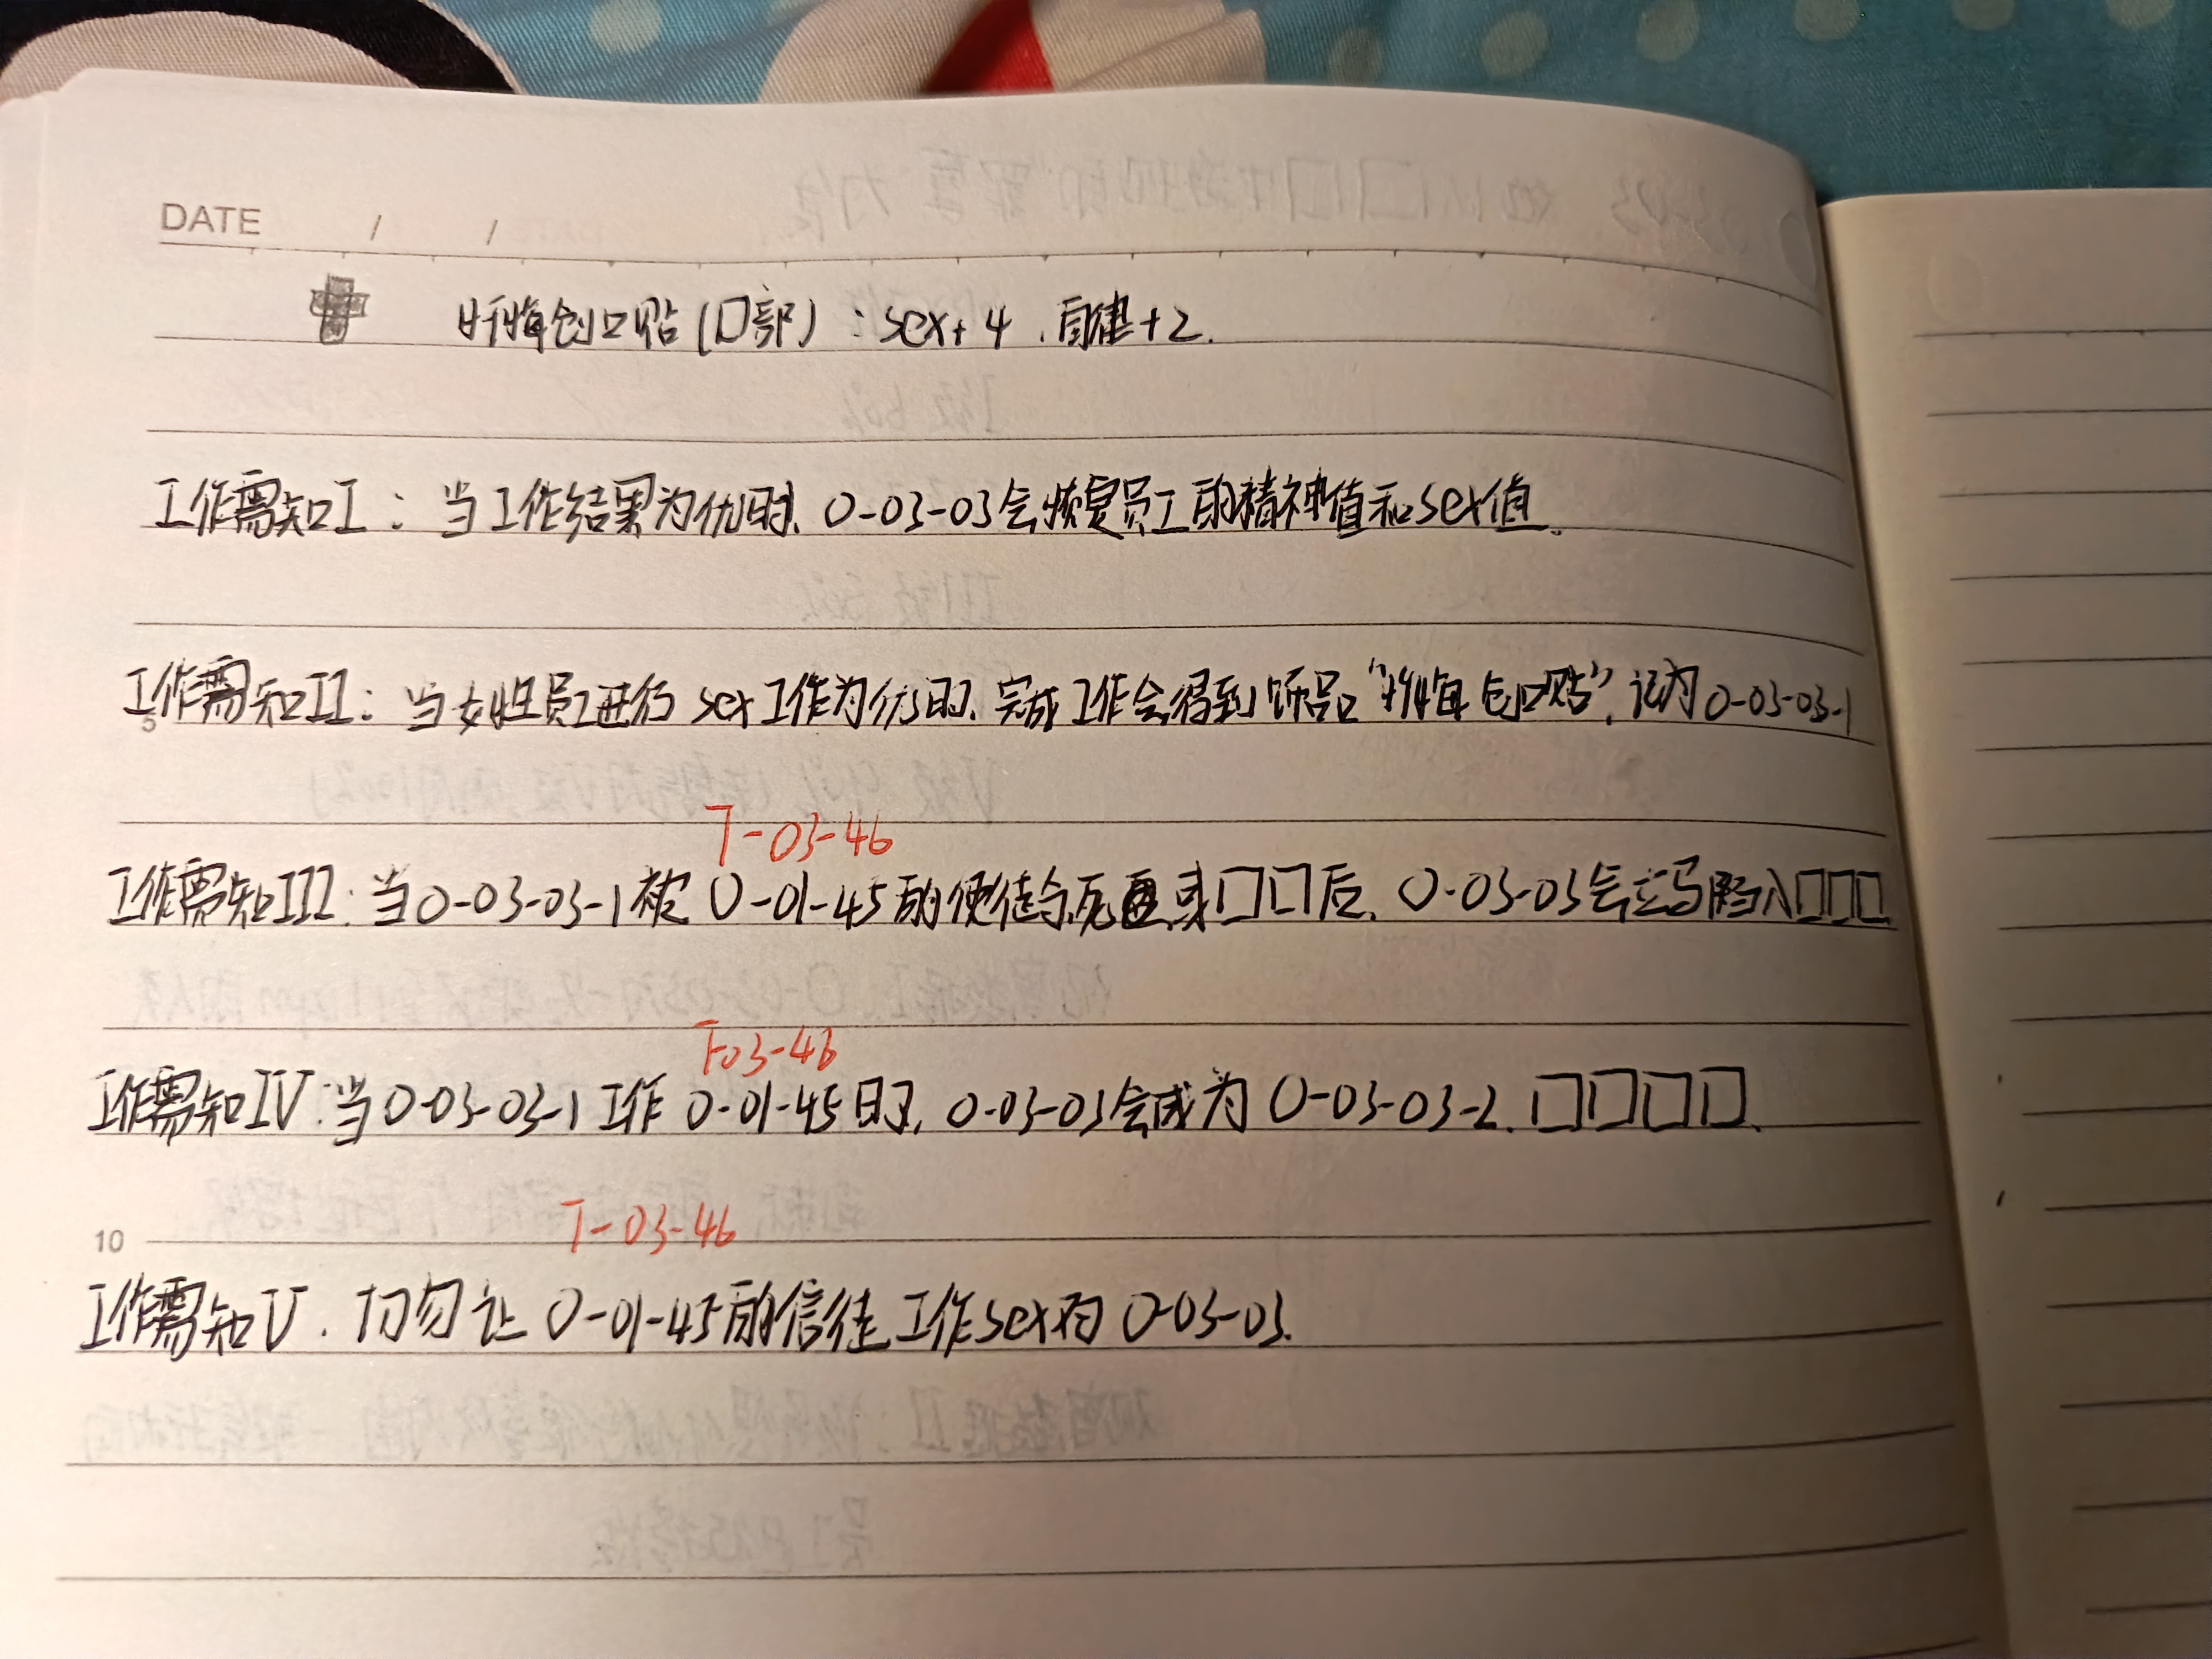 DATE / /
忏悔创口贴(口部):sex+4.自律+2.
工作需知I:当工作结果为优时、O-03-03会恢复员工的精神值和sex值。
工作需知II:当女性员工进行sex工作为优时.完成工作会得到饰品“忏悔创口贴”,记为O-03-03-1
5
T-03-46
工作需知III:当O-03-03-1被O-01-45的使徒杀死□□后.O-03-03会立马陷入□□□
T-03-46
工作需知IV:当O-03-03-1工作O-01-45时,O-03-03会成为O-03-03-2.□□□□.
10
T-03-46
工作需知V.切勿让O-01-45的信徒工作sex为O-03-03.